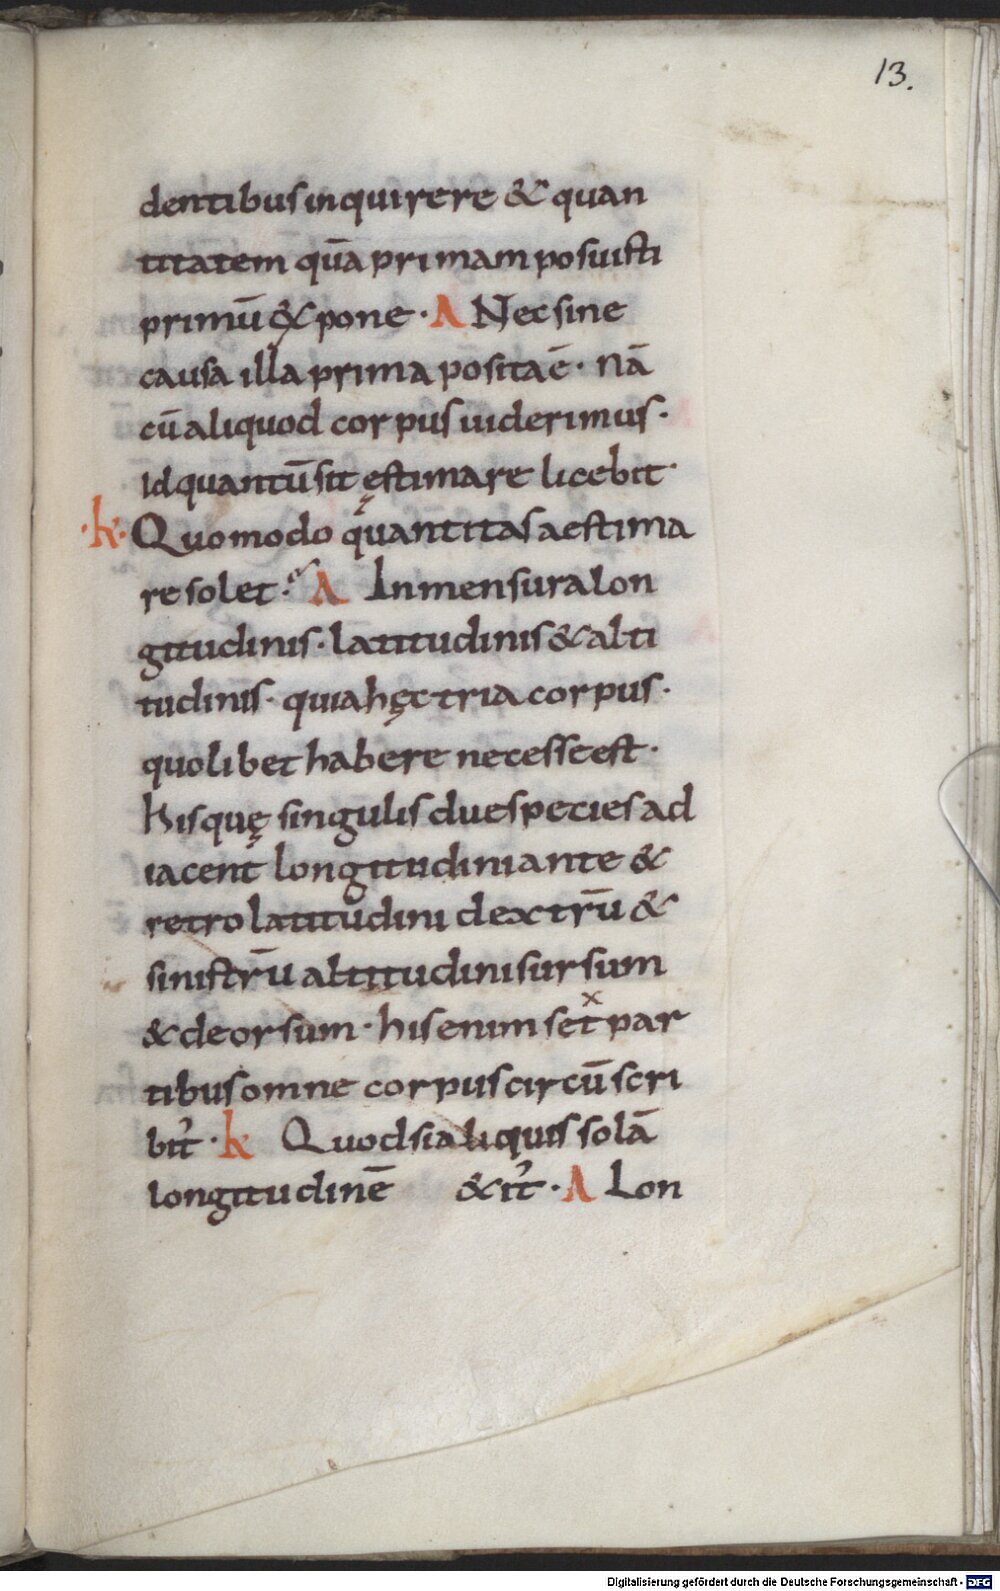 13.
dentibus inquirere & quan
titatem quā primam posuisti
primū & pone · A Nec sine
causa illa prima posita ē · nā
cū aliquod corpus uiderimus ·
Id quantū sit ęstimare licebit ·
·k· Quomodo quantitas aestima
re solet · A In mensura lon
gitudinis · latitudinis & alti
tudinis · quia hęc tria corpus ·
quolibet habere necesse est ·
hisquę singulis due species ad
iacent longitudini ante &
retro latitudini dextrū &
sinistrū altitudini sursum
& deorsum · his enim set par
x
tibus omne corpus circūscri
bit̄ · k Quod si aliquis solā
longitudinē &it̄ · A Lon
Digitalisierung gefördert durch die Deutsche Forschungsgemeinschaft - DFG